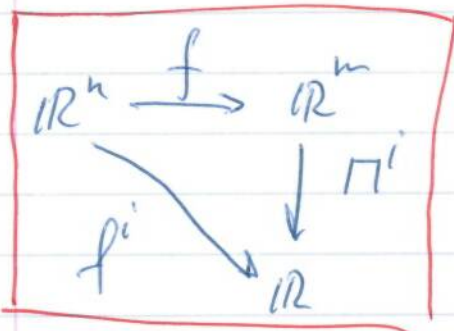 f
ℝⁿ ⟶ ℝᵐ
Πⁱ
fⁱ
ℝ